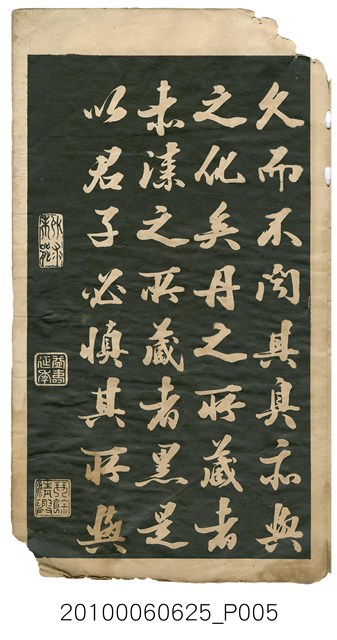 久而不聞其臭亦與
之化矣丹之所藏者
赤漆之所藏者黑是
以君子必慎其所與
20100060625_P005